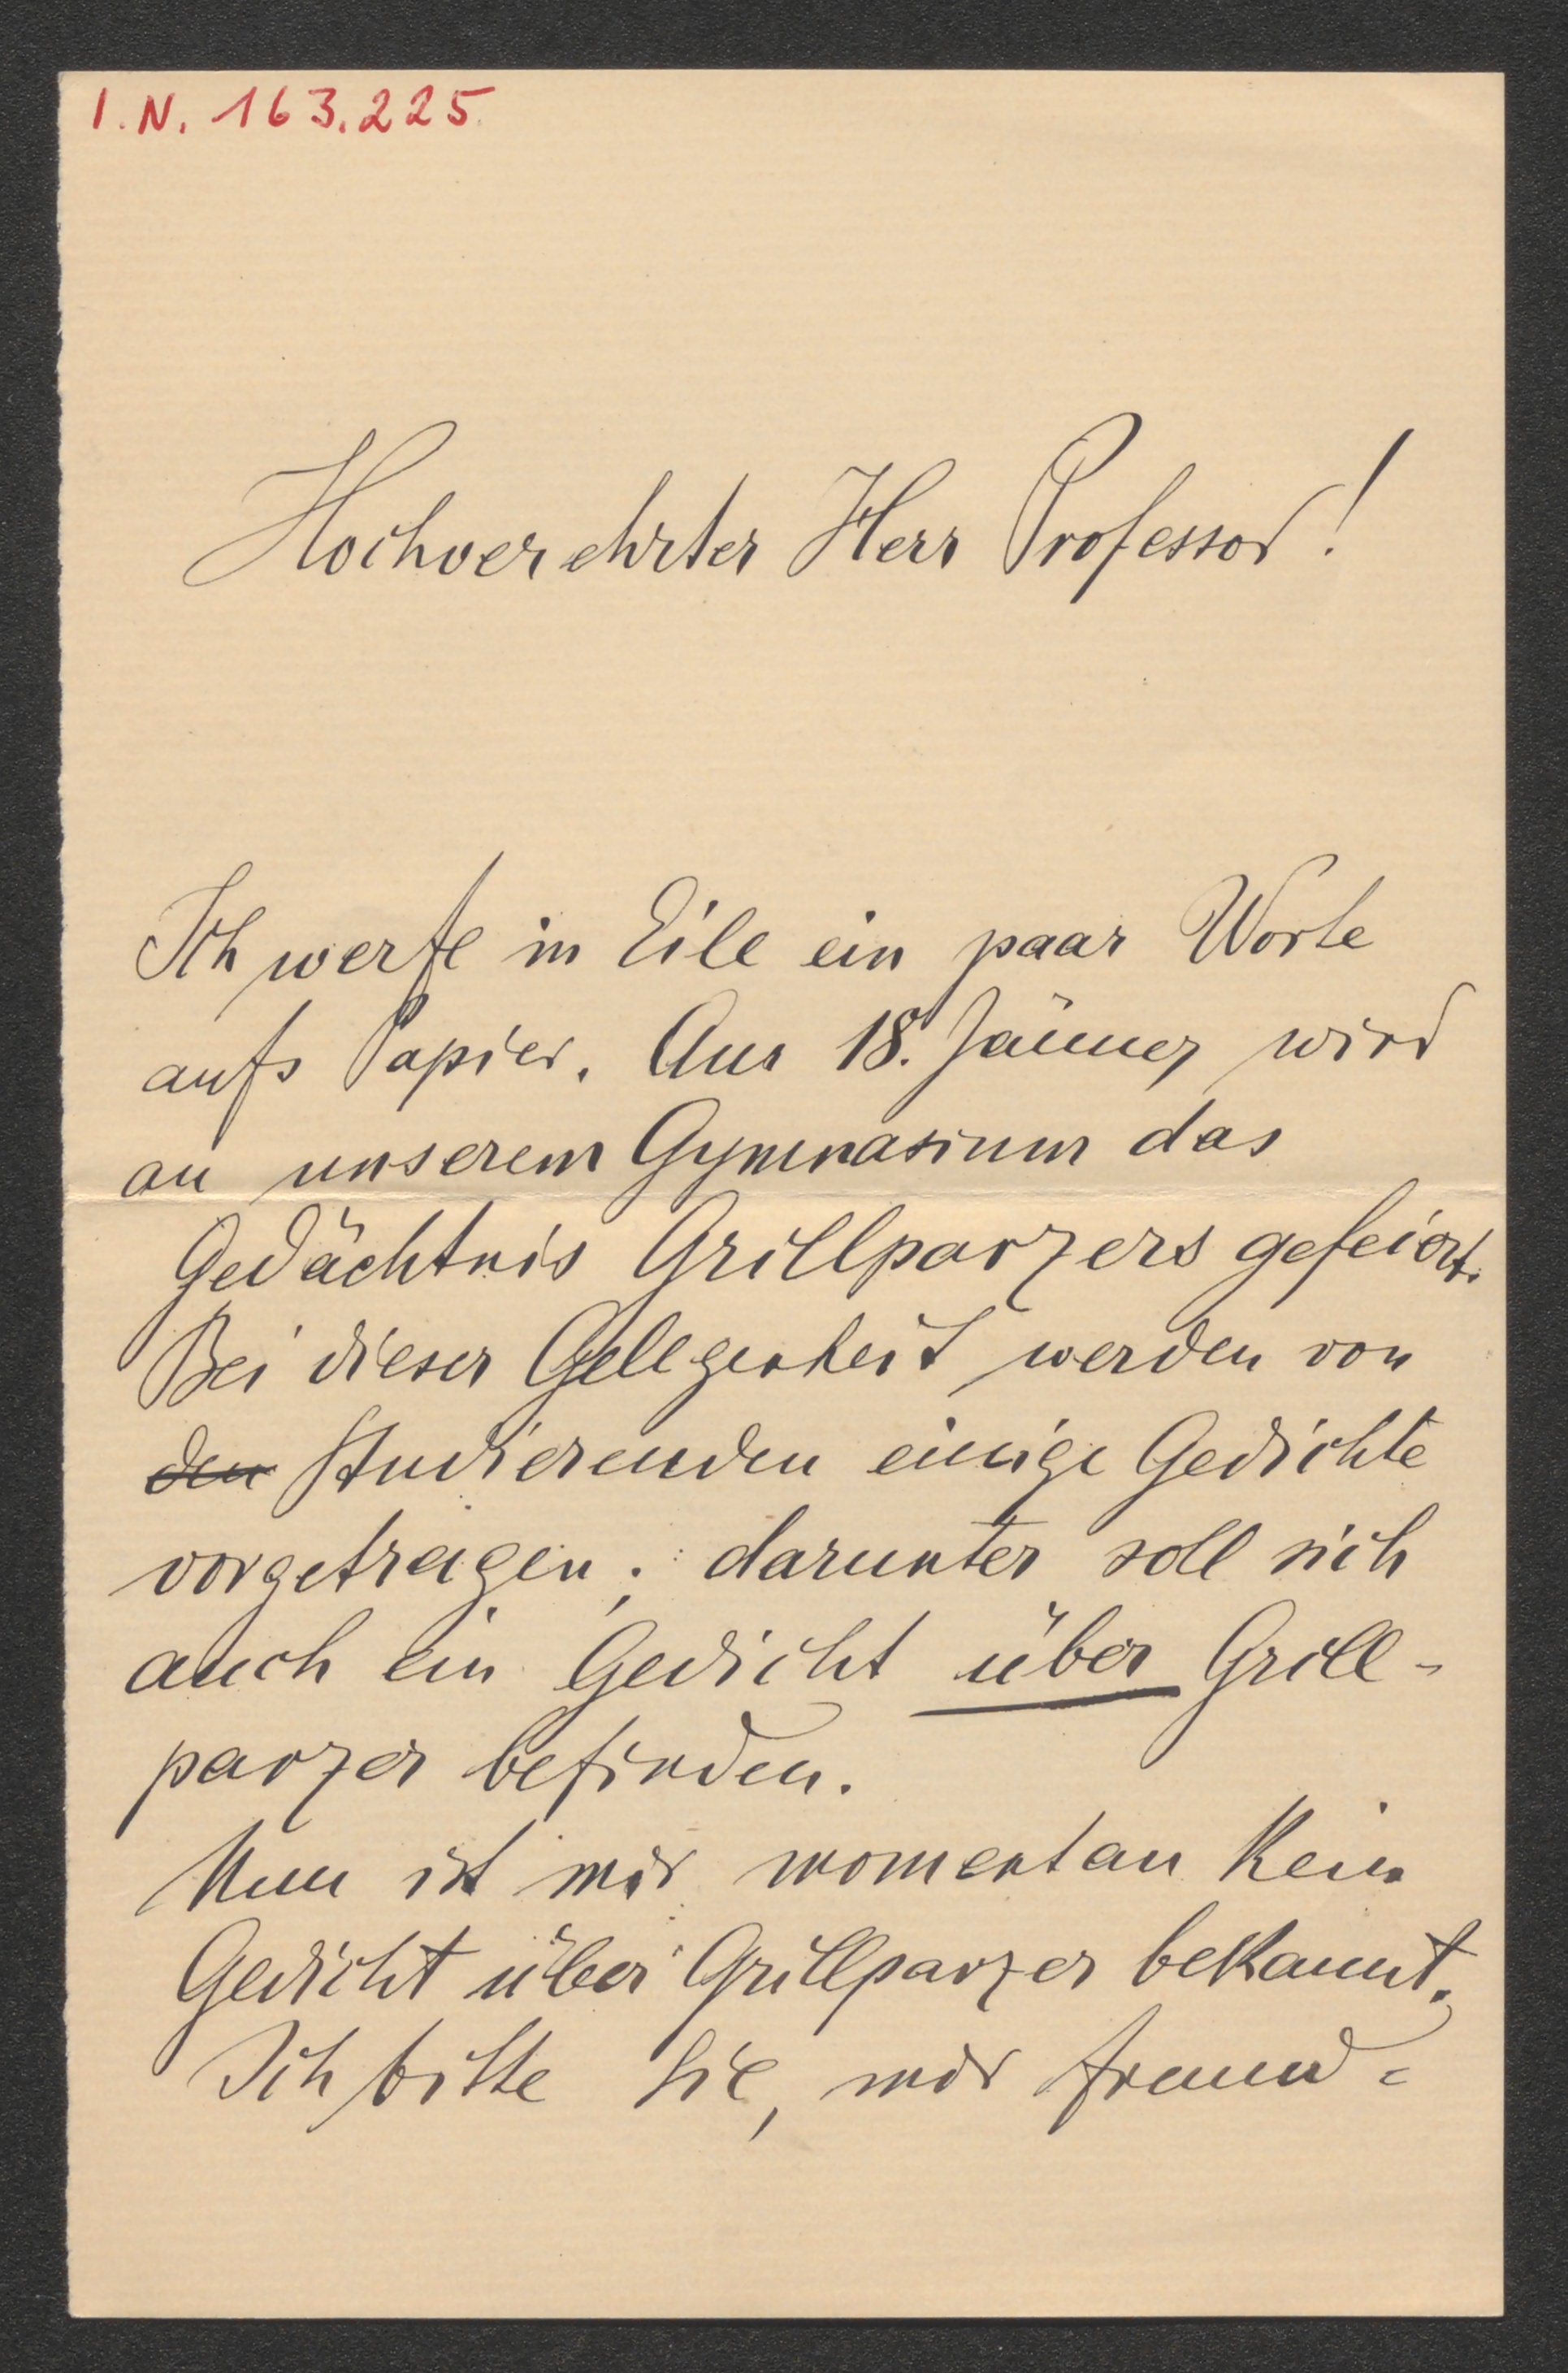 I.N. 163.225.
Hochverehrter Herr Professor!
Ich werfe in Eile ein paar Worte
aufs Papier. Am 18. Jänner wird
an unserem Gymnasium das
Gedächtnis Grillparzers gefeiert.
Bei dieser Gelegenheit werden von
den Studierenden einige Gedichte
vorgetragen; darunter soll sich
auch ein Gedicht über Grill-
parzer befinden.
Nun ist mir momentan kein
Gedicht über Grillparzer bekannt.
Ich bitte Sie, mir freund-